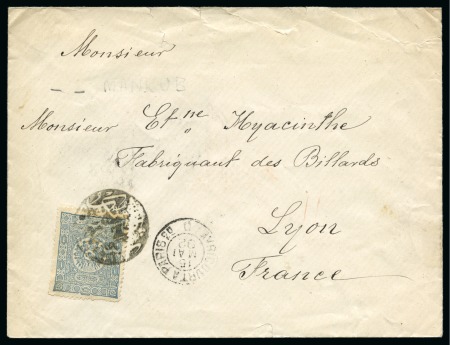 Monsieur
Monsieur Et.ne Hyacinthe
Fabriquant des Billards
Lyon
France
A PARIS
15
MAI